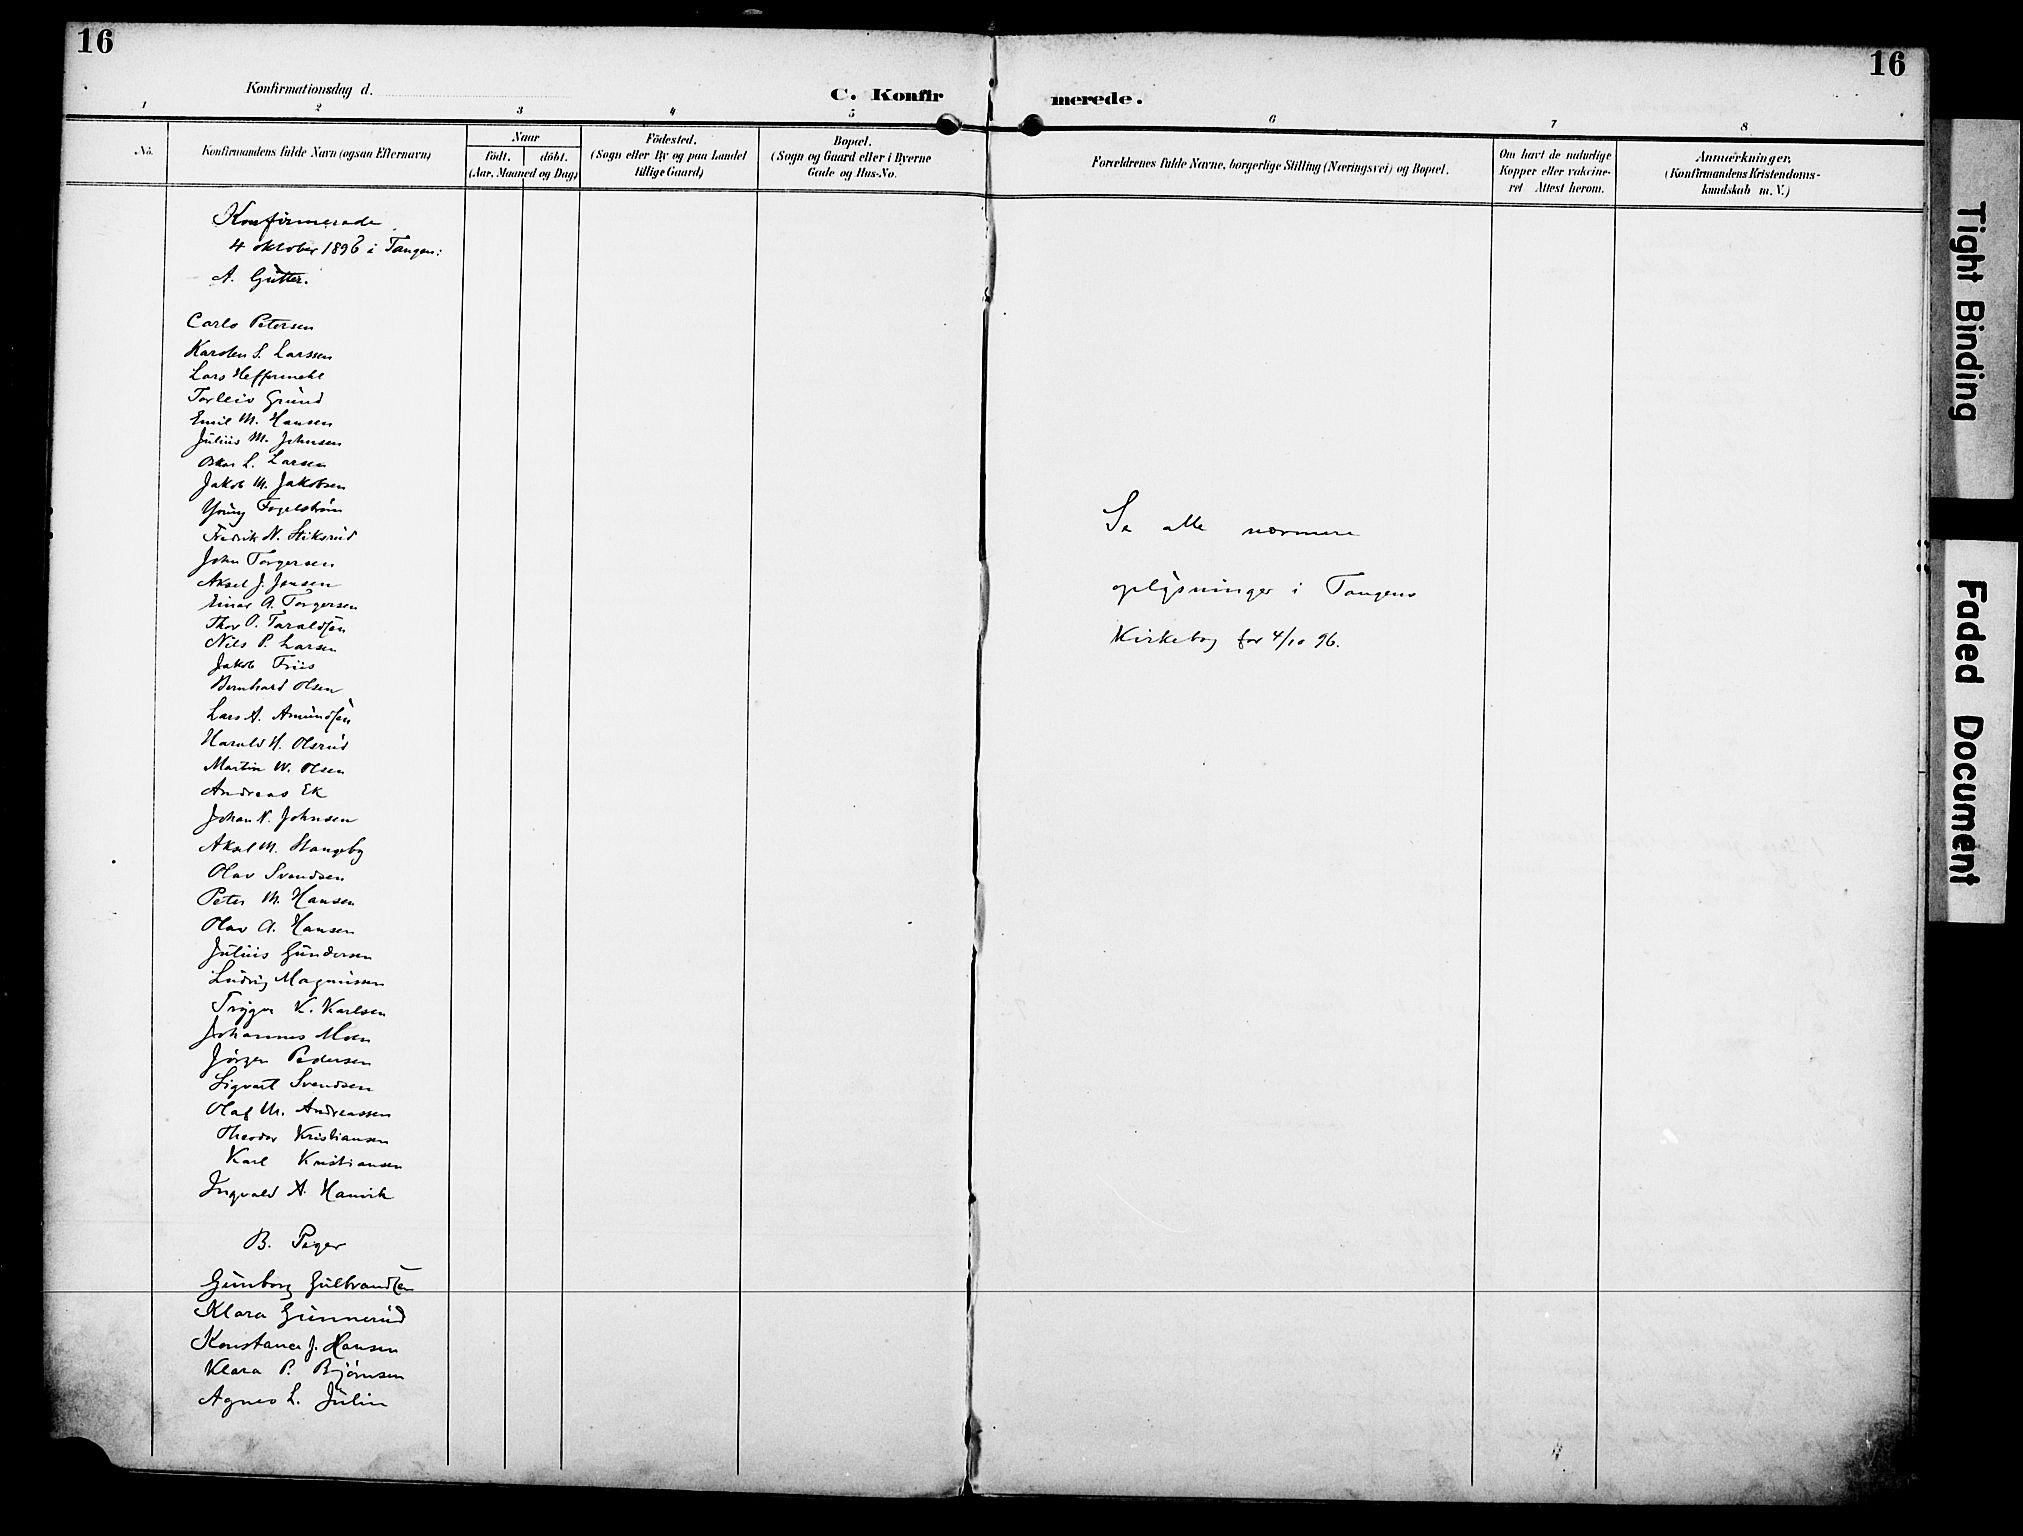 16
16
Konfirmationsdag d.
C. Konfirmerede.
1
2
3
4
5
6
7
8
No.
Konfirmandens fulde Navn (ogsaa Efternavn)
Naar
født. døbt.
(Aar, Maaned og Dag)
Fødested.
(Sogn eller By og paa Landet
tillige Gaard)
Bopæl.
(Sogn og Gaard eller i Byerne
Gade og Hus-No.
Forældrenes fulde Navne, borgerlige Stilling (Næringsvei) og Bopæl.
Om havt de naturlige
Kopper eller vakcine-
ret Attest herom.
Anmærkninger.
(Konfirmandens Kristendoms-
kundskab m. V.)
Konfirmerede
4 oktober 1896 i Tangen:
A. Gutter.
Carlo Petersen
Karsten S. Larssen
Lars Heffermehl
Torleiv Grund
Emil M. Hansen
Julius M. Johnsen
Oskar L. Larsen
Jakob M. Jakobsen
Young Fogelstrøm
Fredrik N. Stiksrud
John Torgersen
Aksel J. Jensen
Einar A. Torgersen
Thor O. Taraldsen
Nils P. Larsen
Jakob Friis
Bernhard Olsen
Lars A. Amundsen
Harald H. Olsrud
Martin W. Olsen
Andreas Ek
Johan N. Johnsen
Aksel M. Stangeby
Olav Svendsen
Peter M. Hansen
Olav A. Hansen
Julius Gundersen
Ludvig Magnussen
Trygve K. Karlsen
Johannes Moen
Jörgen Pedersen
Sigvart Svendsen
Olaf M. Andreassen
Theodor Kristiansen
Karl Kristiansen
Ingvald A. Hamvik
B. Piger
Gunborg Gulbrandsen
Klara Gunnerud
Konstance J. Hansen
Klara P. Bjørnsen
Agnes L. Julin
Se alle nærmere
oplysninger i Tangens
Kirkebog for 4/10 96.
Tight Binding
Faded Document